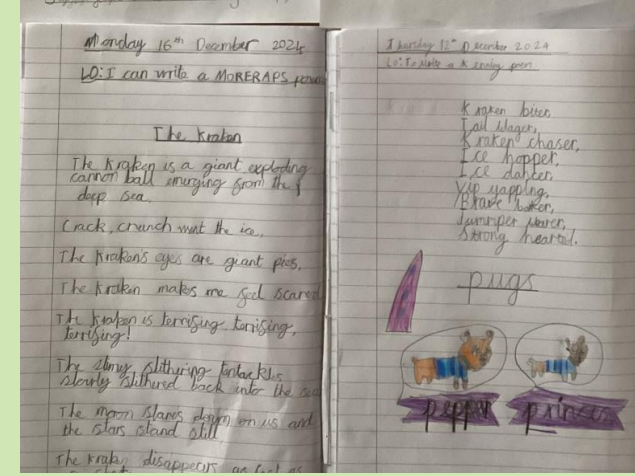 Monday 16th December 2024
LO: I can write a MORERAPS poem
The Kraken
The Kraken is a giant exploding
cannon ball emurging from the
deep sea.
Crack, crunch went the ice,
The Kraken's eyes are giant pies,
The Kraken makes me feel scared
The Kraken is terrifsing, terrifsing,
terrifsing!
The slimy, slithering tentackles
slowly slithered back into the sea
The moon stares down on us and
the stars stand still
The Kraken disappears as fast as
Thursday 12th December 2024
LO: To write a Kenning poem
Kraken biter,
Tail wager,
Kraken chaser,
Ice hopper,
Ice dancer,
Yip yapping,
Brave barker,
Jumper wearer,
Strong hearted.
pugs
pepper
princess